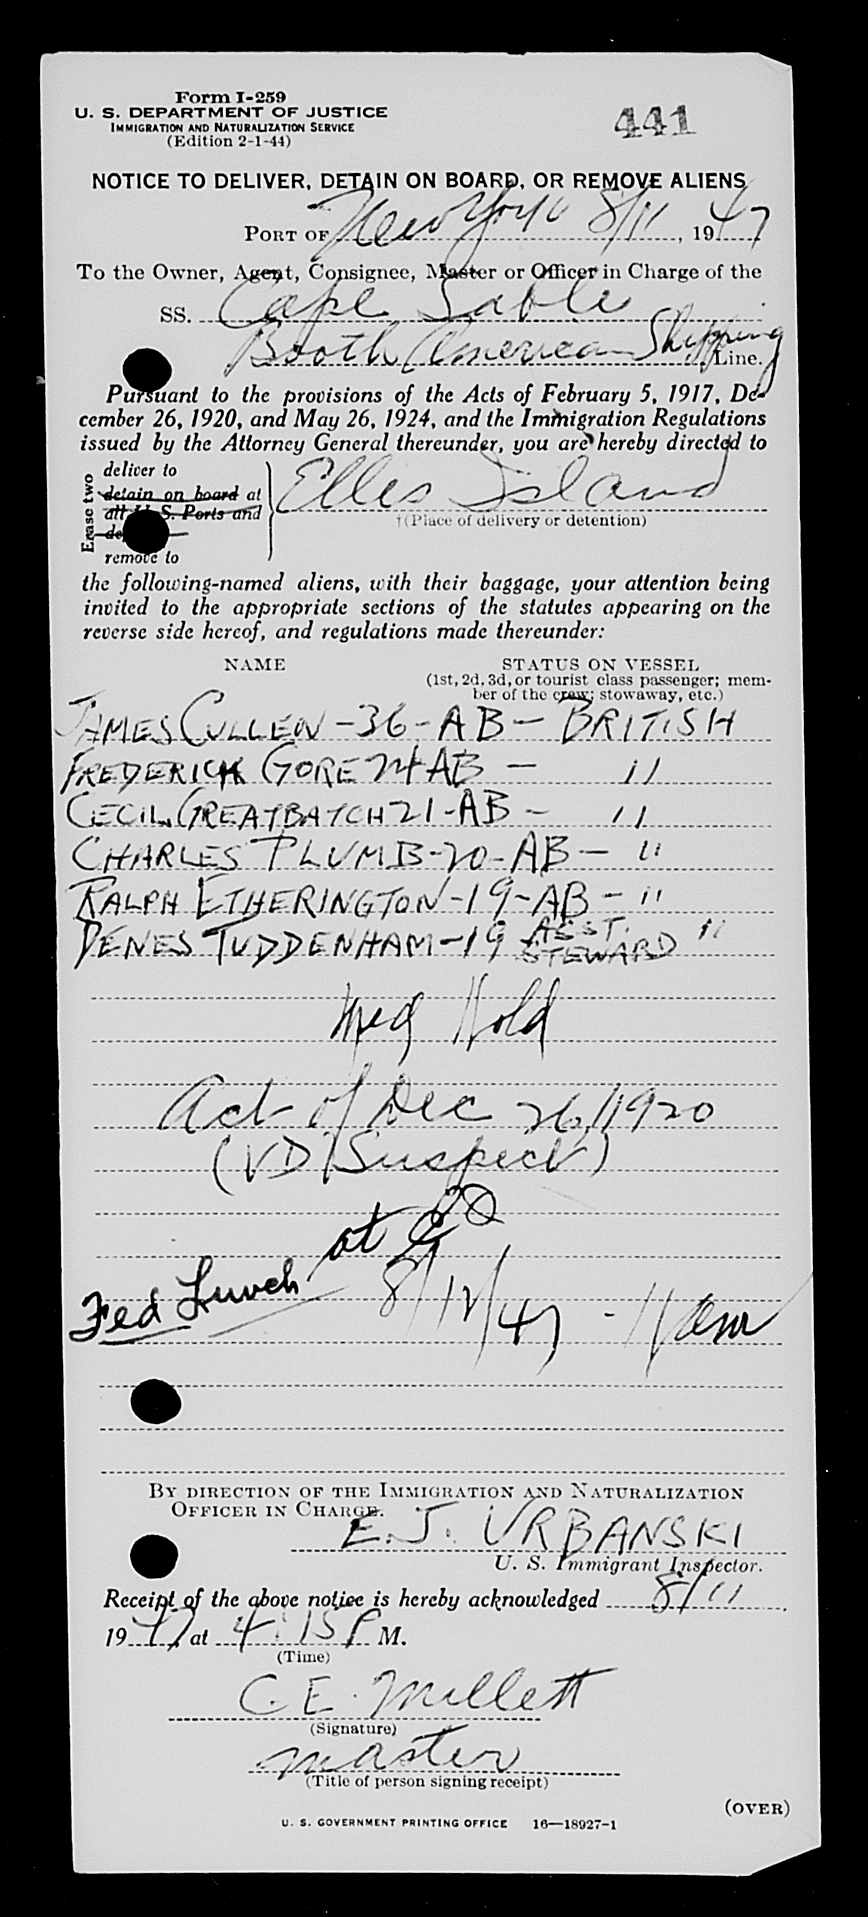 Form I-259
U. S. DEPARTMENT OF JUSTICE
IMMIGRATION AND NATURALIZATION SERVICE
(Edition 2-1-44)
441
NOTICE TO DELIVER, DETAIN ON BOARD, OR REMOVE ALIENS
PORT OF New York 8/11, 1947
To the Owner, Agent, Consignee, Master or Officer in Charge of the
SS. Cape Sable
Booth American Shipping Line.
Pursuant to the provisions of the Acts of February 5, 1917, De-
cember 26, 1920, and May 26, 1924, and the Immigration Regulations
issued by the Attorney General thereunder, you are hereby directed to
Erase two
deliver to
detain on board at
all U. S. Ports and
remove to
Elles Island
†(Place of delivery or detention)
the following-named aliens, with their baggage, your attention being
invited to the appropriate sections of the statutes appearing on the
reverse side hereof, and regulations made thereunder:
NAME STATUS ON VESSEL
(1st, 2d, 3d, or tourist class passenger; mem-
ber of the crew; stowaway, etc.)
JAMES CULLEN - 36 - AB - BRITISH
FREDERICK GORE 24 AB - "
CECIL GREATBATCH 21 - AB - "
CHARLES PLUMB - 20 - AB - "
RALPH ETHERINGTON - 19 - AB - "
DENES TUDDENHAM - 19 ASST. STEWARD "
Med Hold
Act of Dec 26, 1920
(VD Suspect)
at
Fed Lunch 8/12/47 - 11 am
BY DIRECTION OF THE IMMIGRATION AND NATURALIZATION
OFFICER IN CHARGE.
E. J. URBANSKI
U. S. Immigrant Inspector.
Receipt of the above notice is hereby acknowledged 8/11
1947 at 4:15 P M.
(Time)
C. E. Millett
(Signature)
master
(Title of person signing receipt)
(OVER)
U. S. GOVERNMENT PRINTING OFFICE 16—18927-1